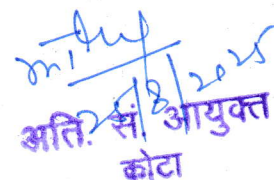 25/8/2025
अति. सं. आयुक्त
कोटा